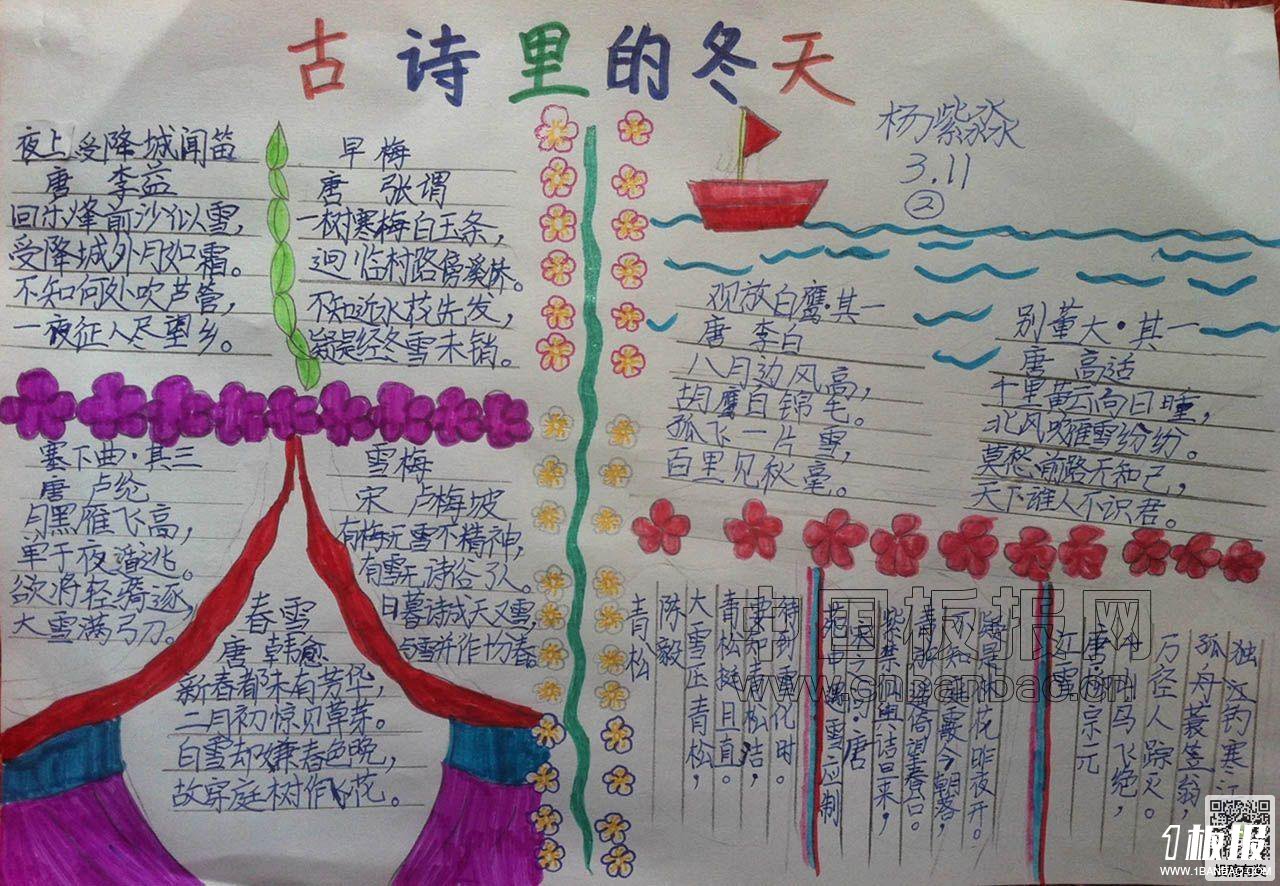 古诗里的冬天
杨紫淼
3.11
②
夜上受降城闻笛
唐 李益
回乐烽前沙似雪，
受降城外月如霜。
不知何处吹芦管，
一夜征人尽望乡。
早梅
唐 张谓
一树寒梅白玉条，
迥临村路傍溪桥。
不知近水花先发，
疑是经冬雪未销。
观放白鹰·其一
唐 李白
八月边风高，
胡鹰白锦毛。
孤飞一片雪，
百里见秋毫。
别董大·其一
唐 高适
千里黄云白日曛，
北风吹雁雪纷纷。
莫愁前路无知己，
天下谁人不识君。
塞下曲·其三
唐 卢纶
月黑雁飞高，
单于夜遁逃。
欲将轻骑逐，
大雪满弓刀。
雪梅
宋 卢梅坡
有梅无雪不精神，
有雪无诗俗了人。
日暮诗成天又雪，
与雪并作十分春。
春雪
唐 韩愈
新春都未有芳华，
二月初惊见草芽。
白雪却嫌春色晚，
故穿庭树作飞花。
青松
陈毅
大雪压青松，
青松挺且直。
要知松高洁，
待到雪化时。
苑中遇雪应制
宋之问·唐
紫禁仙舆诘旦来，
青旂遥倚望春台。
不知庭霰今朝落，
疑是林花昨夜开。
江雪
唐·柳宗元
千山鸟飞绝，
万径人踪灭。
孤舟蓑笠翁，
独钓寒江
中国板报网
www.cnbanbao.cn
1板报
WWW.1BANBAO.COM